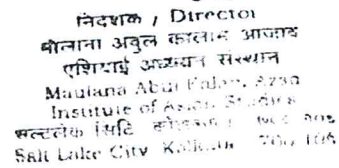 निदेशक / Director
मौलाना अबुल कलाम आजाद
एशियाई अध्ययन संस्थान
Maulana Abul Kalam Azad
Institute of Asian Studies
सल्टलेक सिटि कोलकाता
Salt Lake City Kolkata 700 106